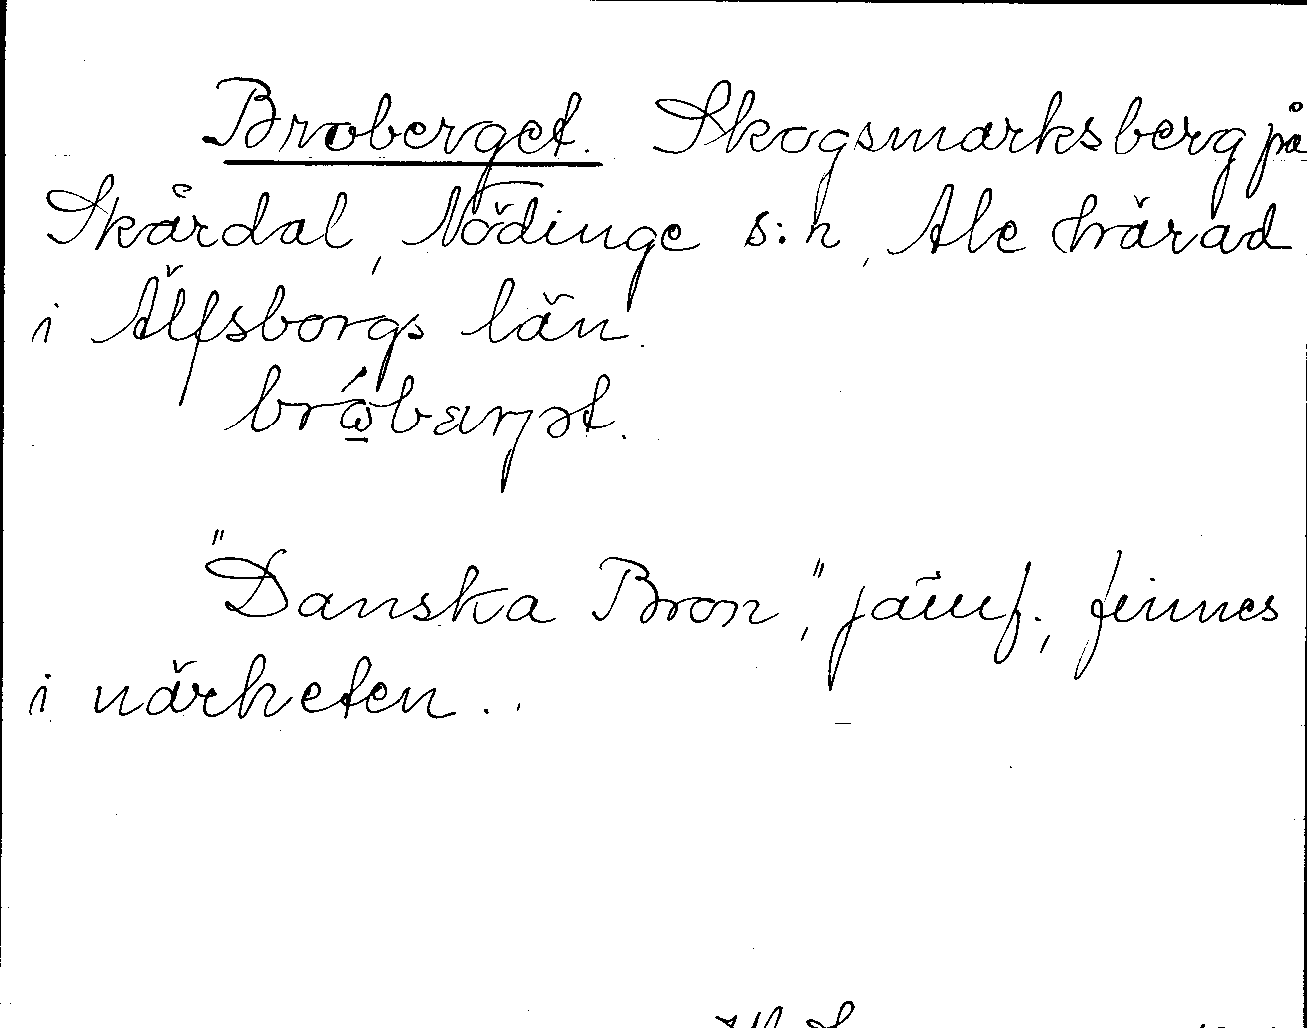 Broberget. Skogsmarksberg på
Skårdal, Nödinge s:n, Ale härad
i Älfsborgs län.
"Danska Bron", jämf., finnes
i närheten.